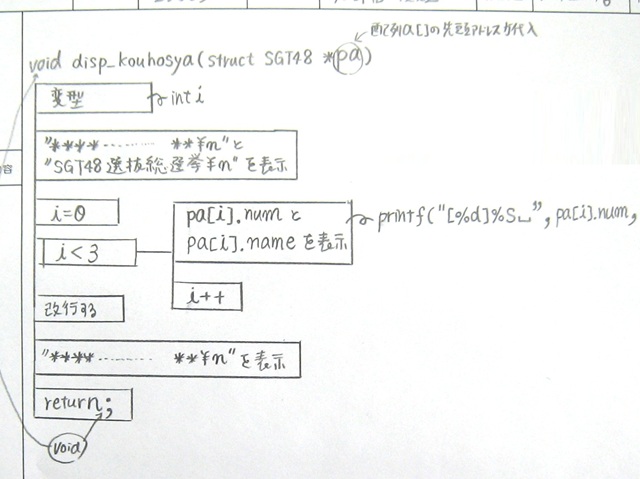 配列a[]の先頭アドレスが代入
void disp_kouhosya(struct SGT48 *pa)
変型
int i
"****---------- **¥n"と
"SGT48選抜総選挙¥n"を表示
i=0
pa[i].numと
pa[i].nameを表示
printf("[%d]%s␣", pa[i].num,
i<3
i++
改行する
"****---------- **¥n"を表示
return;
void
容